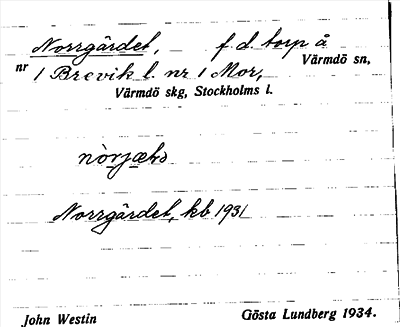 Norrgärdet, f.d. torp å
Värmdö sn,
nr 1 Brevik l. nr 1 Mor,
Värmdö skg, Stockholms l.
Norrgärdet, kb 1931
John Westin Gösta Lundberg 1934.